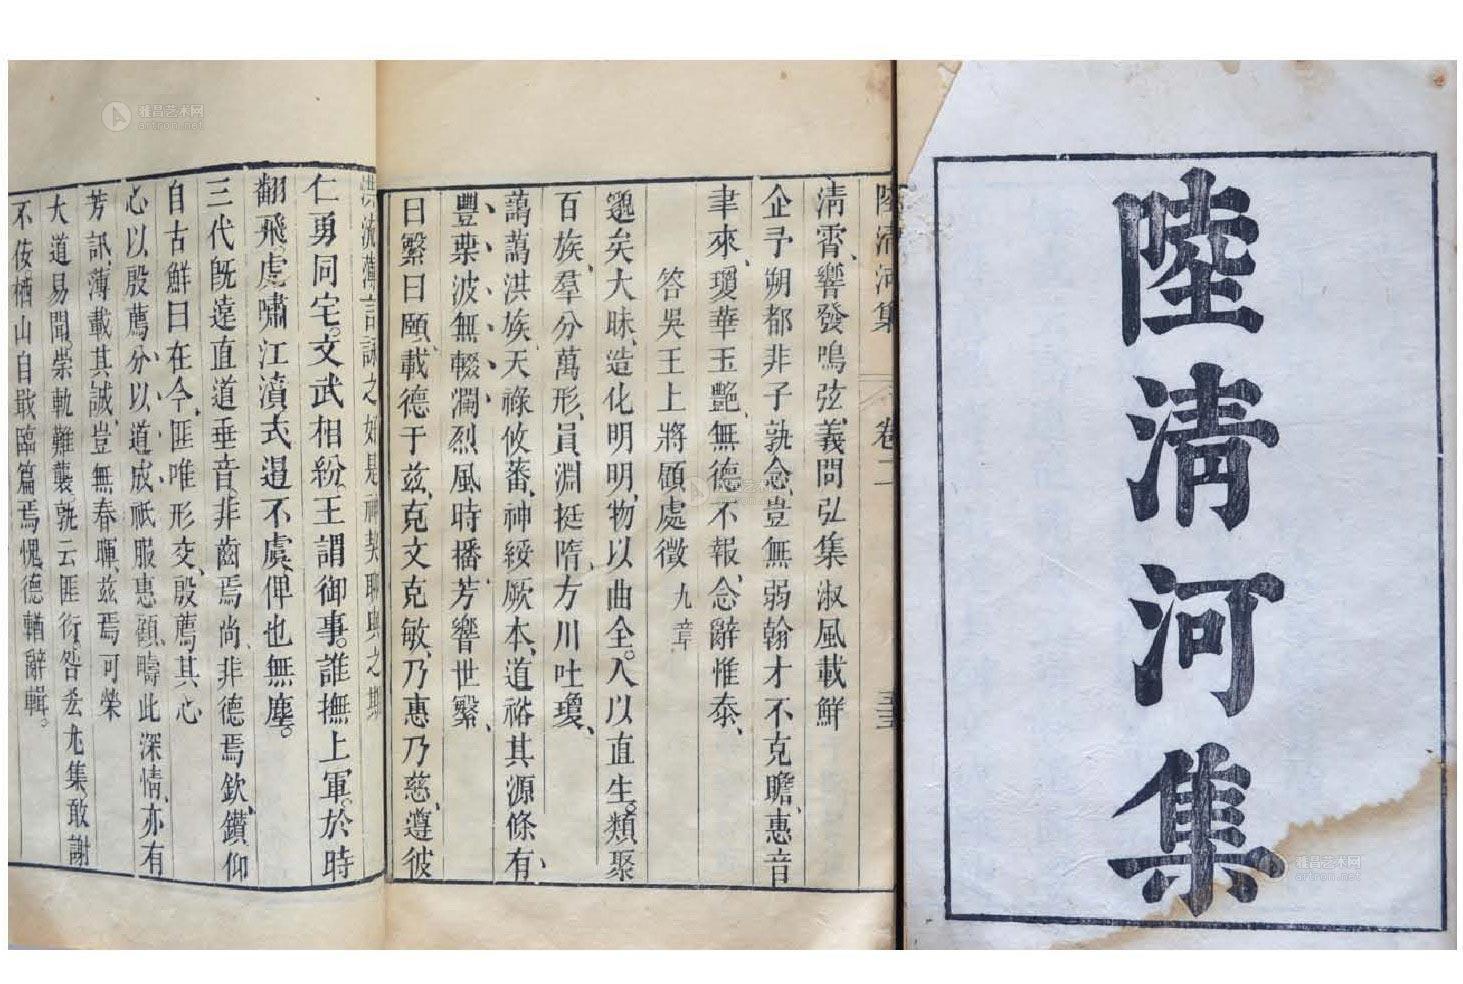 陸淸河集
陸淸河集 卷二
淸霄、響發鳴弦、義問弘集淑風載鮮
企予朔都非子孰念、豈無弱翰才不克瞻、惠音
聿來、瓊華玉艷、無德不報、念辭惟泰、
答吳王上將顧處微 九章
邈矣大昧、造化明明、物以曲全。人以直生。類聚
百族、羣分萬形、員淵挺隋、方川吐瓊、
藹藹洪族、天祿攸蕃、神綏厥本、道裕其源條有
豐葉波無輟瀾烈風時播芳響世繁、
曰繁曰願、載德于兹、克文克敏、乃惠乃慈、遵彼
洪流薄言詠之
仁勇同宅。文武相紛、王謂御事。誰撫上軍。於時
翻飛虎嘯江濆式遏不虞俾也無塵。
三代旣遠直道垂音、非齒焉尚、非德焉欽、鑽仰
自古鮮曰在今、匪唯形交、殷薦其心
心以殷薦、分以道成祇服惠顧、疇此深情、亦有
芳訊、薄載其誠、豈無春暉、兹焉可榮
大道易聞、崇軌難襲、孰云匪衒、咎丞尤集、敢謝
不佞栖山自戢、臨篇焉愧、德輶辭輯。
雅昌艺术网
artron.net
雅昌艺术网
artron.net